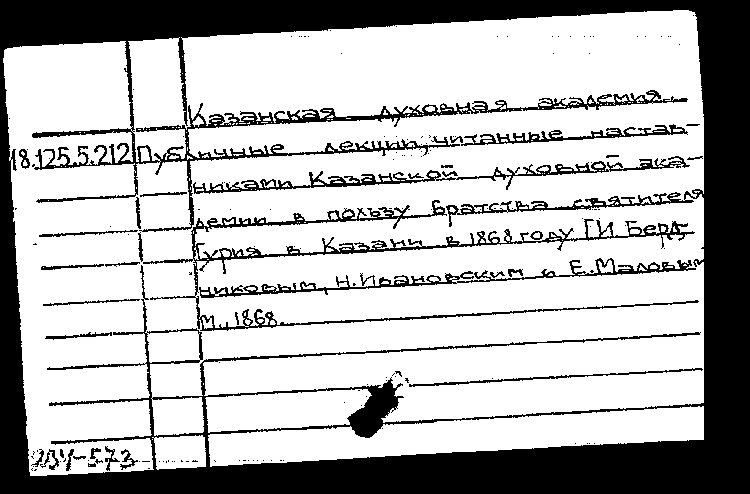 Казанская духовная академия.
18.125.5.212 Публичные лекции, читанные настав-
никами Казанской духовной ака-
демии в пользу братства святителя
Гурия в Казани в 1868 году П.И. Берд-
никовым, Н. Ивановским и Е. Маловым
М., 1868.